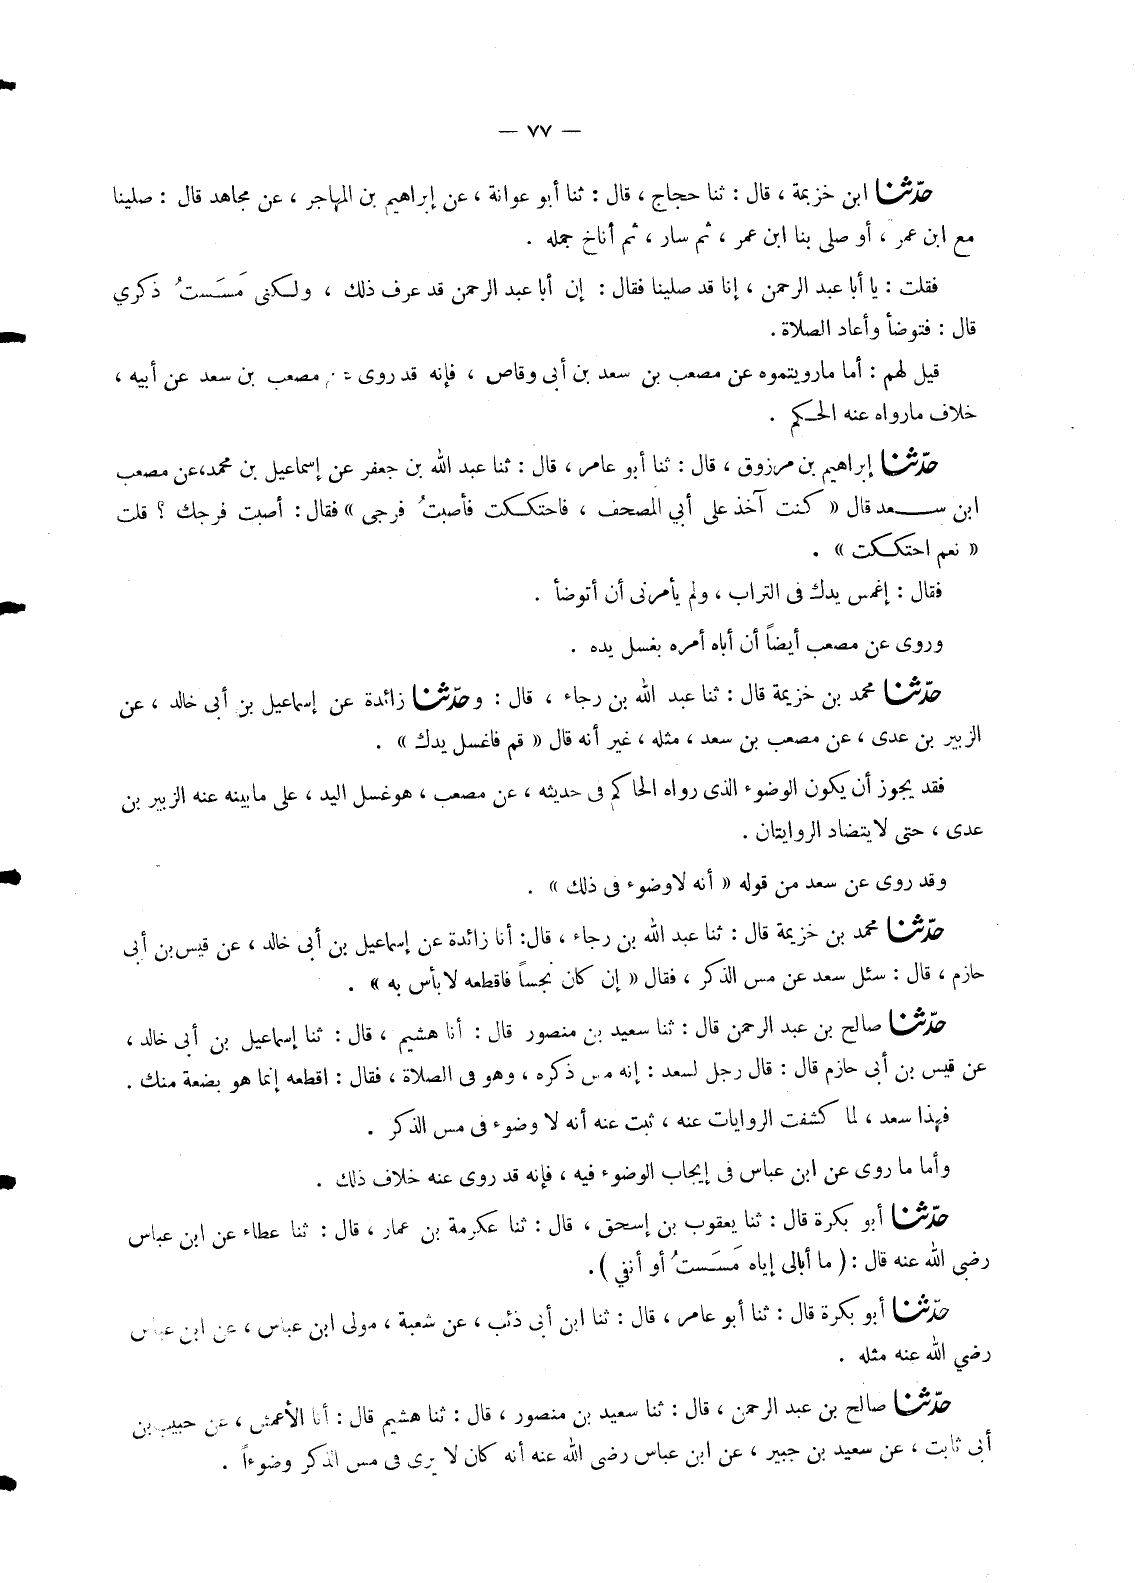 — ٧٧ —
حدّثنا ابن خزيمة ، قال : ثنا حجاج ، قال : ثنا أبو عوانة ، عن إبراهيم بن المهاجر ، عن مجاهد قال : صلينا
مع ابن عمر ، أو صلى بنا ابن عمر ، ثم سار ، ثم أناخ جمله .
فقلت : يا أبا عبد الرحمن ، إنا قد صلينا فقال : إن أبا عبد الرحمن قد عرف ذلك ، ولكنى مَسَستُ ذكري
قال : فتوضأ وأعاد الصلاة .
قيل لهم : أما مارويتموه عن مصعب بن سعد بن أبى وقاص ، فإنه قد روى عن مصعب بن سعد عن أبيه ،
خلاف مارواه عنه الحكم .
حدّثنا إبراهيم بن مرزوق ، قال : ثنا أبو عامر ، قال : ثنا عبد الله بن جعفر عن إسماعيل بن محمد، عن مصعب
ابن سعد قال « كنت آخذ على أبي المصحف ، فاحتككت فأصبتُ فرجى » فقال : أصبت فرجك ؟ قلت
« نعم احتككت » .
فقال : إغمس يدك فى التراب ، ولم يأمرنى أن أتوضأ .
وروى عن مصعب أيضاً أن أباه أمره بغسل يده .
حدّثنا محمد بن خزيمة قال : ثنا عبد الله بن رجاء ، قال : وحدّثنا زائدة عن إسماعيل بن أبى خالد ، عن
الزبير بن عدى ، عن مصعب بن سعد ، مثله ، غير أنه قال « قم فاغسل يدك » .
فقد يجوز أن يكون الوضوء الذى رواه الحاكم فى حديثه ، عن مصعب ، هو غسل اليد ، على مابينه عنه الزبير بن
عدى ، حتى لا يتضاد الروايتان .
وقد روى عن سعد من قوله « أنه لاوضوء فى ذلك » .
حدّثنا محمد بن خزيمة قال : ثنا عبد الله بن رجاء ، قال : أنا زائدة عن إسماعيل بن أبى خالد ، عن قيس بن أبى
حازم ، قال : سئل سعد عن مس الذكر ، فقال « إن كان نجساً فاقطعه لابأس به » .
حدّثنا صالح بن عبد الرحمن قال : ثنا سعيد بن منصور قال : أنا هشيم ، قال : ثنا إسماعيل بن أبى خالد ،
عن قيس بن أبى حازم قال : قال رجل لسعد : إنه مس ذكره ، وهو فى الصلاة ، فقال : اقطعه إنما هو بضعة منك .
فهذا سعد ، لما كشفت الروايات عنه ، ثبت عنه أنه لا وضوء فى مس الذكر .
وأما ما روى عن ابن عباس فى إيجاب الوضوء فيه ، فإنه قد روى عنه خلاف ذلك .
حدّثنا أبو بكرة قال : ثنا يعقوب بن إسحق ، قال : ثنا عكرمة بن عمار ، قال : ثنا عطاء عن ابن عباس
رضى الله عنه قال : ( ما أبالى إياه مَسَستُ أو أنفي ) .
حدّثنا أبو بكرة قال : ثنا أبو عامر ، قال : ثنا ابن أبى ذئب ، عن شعبة ، مولى ابن عباس ، عن ابن عباس
رضي الله عنه مثله .
حدّثنا صالح بن عبد الرحمن ، قال : ثنا سعيد بن منصور ، قال : ثنا هشيم قال : أنا الأعمش ، عن حبيب بن
أبى ثابت ، عن سعيد بن جبير ، عن ابن عباس رضى الله عنه أنه كان لا يرى فى مس الذكر وضوءاً .